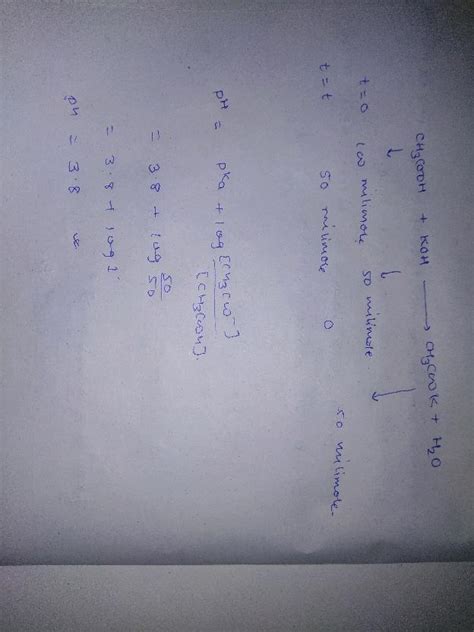 CH3COOH + KOH ⟶ CH3COOK + H2O
t=0 100 milimole 50 milimole
t=t 50 milimole 0 50 milimole
pH = pKa + log [CH3COO⁻]/[CH3COOH].
= 3.8 + log 50/50
= 3.8 + log 1
pH = 3.8